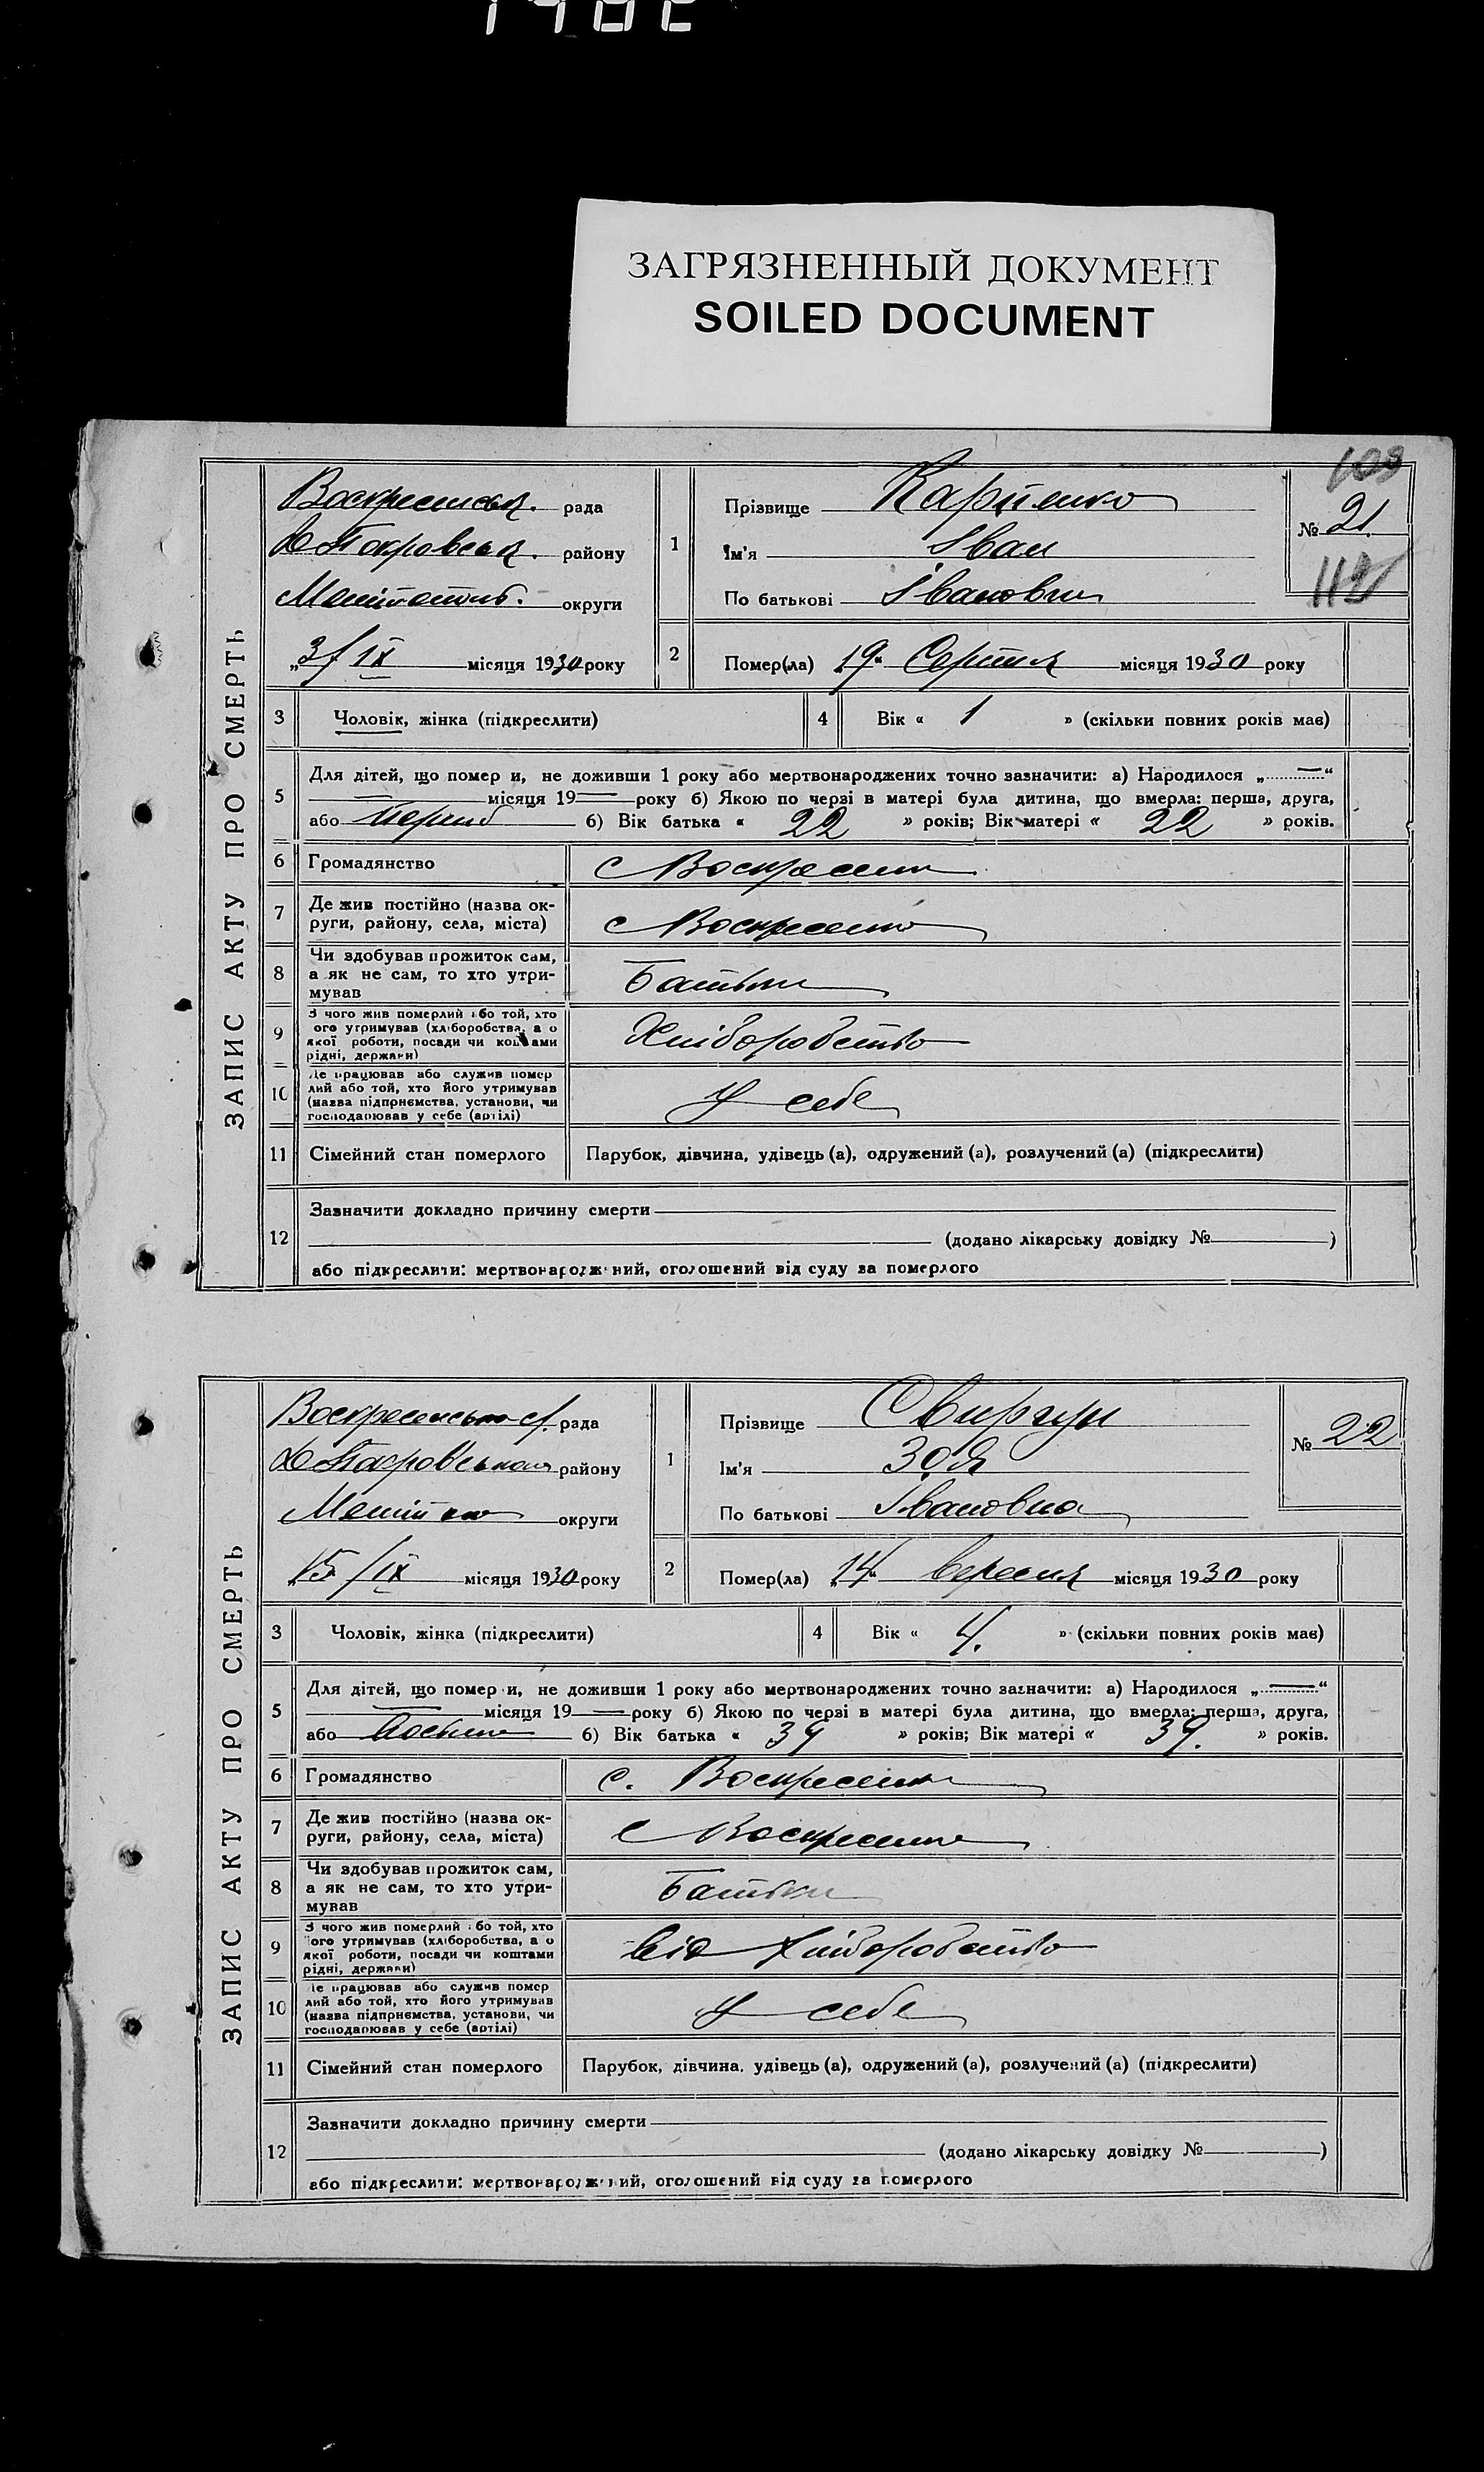 ЗАГРЯЗНЕННЫЙ ДОКУМЕНТ
SOILED DOCUMENT
ЗАПИС АКТУ ПРО СМЕРТЬ
109
Воскресенськ. рада
району
округи
3/IX місяця 1930 року
1
Прізвище Карпенко
Ім'я Іван
По батькові Іванович
№ 21.
112
2
Помер(ла) 19 Серпня місяця 1930 року
3
Чоловік, жінка (підкреслити)
4
Вік « 1 » (скільки повних років має)
5
Для дітей, що помер и, не доживши 1 року або мертвонароджених точно зазначити: а) Народилося „ — “
— місяця 19 — року б) Якою по черзі в матері була дитина, що вмерла: перша, друга,
або б) Вік батька « 22 » років; Вік матері « 22 » років.
6
Громадянство
с Воскресенк
7
Де жив постійно (назва ок-
руги, району, села, міста)
с Воскресенка
8
Чи здобував прожиток сам,
а як не сам, то хто утри-
мував
Батьки
9
З чого жив померлий або той, хто
ого утримував (хліборобства, а о
якої роботи, посади чи коштами
рідні, держави)
Хліборобство
10
Де працював або служив помер
лий або той, хто його утримував
(назва підприємства, установи, чи
господарював у себе (артілі)
У себе
11
Сімейний стан померлого
Парубок, дівчина, удівець (а), одружений (а), розлучений (а) (підкреслити)
12
Зазначити докладно причину смерти
(додано лікарську довідку № )
або підкреслити: мертвонароджений, оголошений від суду за померлого
ЗАПИС АКТУ ПРО СМЕРТЬ
рада
району
округи
15/IX місяця 1930 року
1
Прізвище Свиргун
Ім'я Зоя
По батькові Івановна
№ 22
2
Помер(ла) „14“ вересня місяця 1930 року
3
Чоловік, жінка (підкреслити)
4
Вік « 4. » (скільки повних років має)
5
Для дітей, що помер и, не доживши 1 року або мертвонароджених точно зазначити: а) Народилося „ — “
— місяця 19 — року б) Якою по черзі в матері була дитина, що вмерла: перша, друга,
або б) Вік батька « 39 » років; Вік матері « 39. » років.
6
Громадянство
с. Воскресенк
7
Де жив постійно (назва ок-
руги, району, села, міста)
с Воскресенка
8
Чи здобував прожиток сам,
а як не сам, то хто утри-
мував
Батьки
9
З чого жив померлий або той, хто
ого утримував (хліборобства, а о
якої роботи, посади чи коштами
рідні, держави)
Від хліборобства
10
Де працював або служив помер
лий або той, хто його утримував
(назва підприємства, установи, чи
господарював у себе (артілі)
У себе
11
Сімейний стан померлого
Парубок, дівчина, удівець (а), одружений (а), розлучений (а) (підкреслити)
12
Зазначити докладно причину смерти
(додано лікарську довідку № )
або підкреслити: мертвонароджений, оголошений від суду за померлого